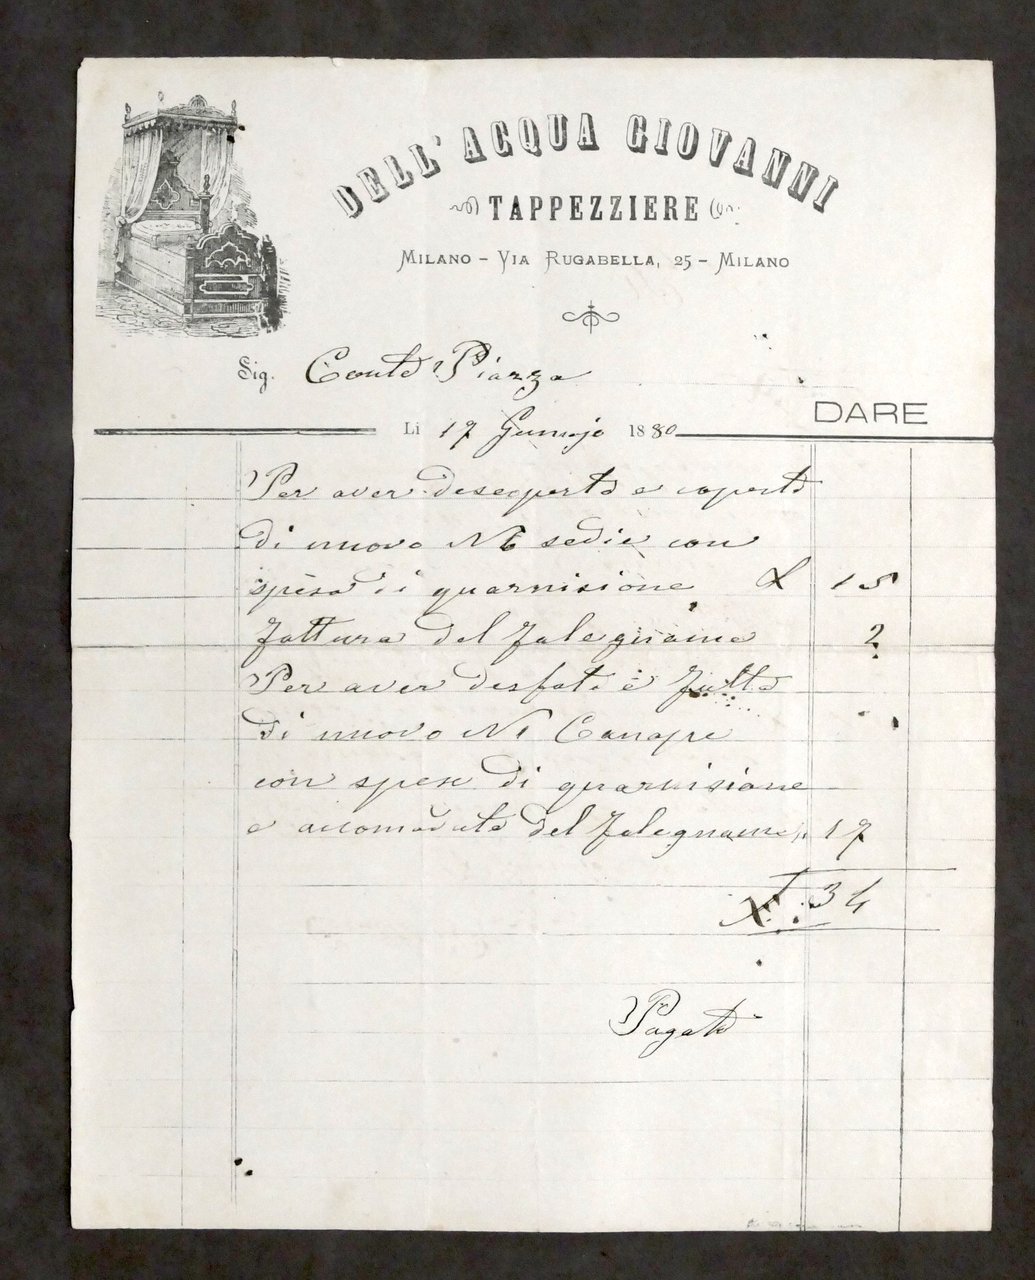 DELL' ACQUA GIOVANNI
TAPPEZZIERE
MILANO - VIA RUGABELLA, 25 - MILANO
Sig. Conte Piazza
DARE
Li 17 1880
Per aver descoperto e coperto
di nuovo N 6 sedie con
spesa di guarnisione £ 15
fattura del falegname 2
Per aver desfato e fatto
di nuovo N 1 Canape
con spese di guarnisione
e acomodato del falegname 17
£. 34
Pagato